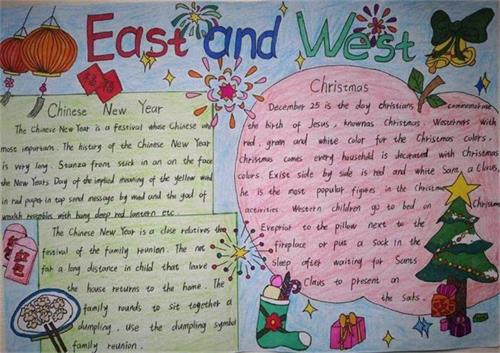 East and West
Chinese New Year
The Chinese New Year is a festival whose Chinese
most impurians. The history of the Chinese New Year
is very long. Stanza front stick in an on the face
the New Years Day of the implied meaning of the yellow word
in red paper in top send message by mad and the god of
wealth with hang deep red lantern etc
The Chinese New Year is a close relatives the
festival of the family reunion. The not
far a long distance in child that leave
the house returns to the home. The
family rounds to sit together a
dumpling, use the dumpling symbol
family reunion.
Christmas
December 25 is the day christians commemorate
the birth of Jesus, knownas Christmas. Westerners with
red gram and white color for the Christmas colors.
Christmas comes every household is decorated with Christmas
colors. Exist side by side is red and white Santa Claus,
he is the most popular figures in the Christmas
activities Western children go to bed on Christmas
Eveprior to the pillow next to the
fireplace or puts a sock in the
sleep after waiting for Santa
Claus to present on
the soks.